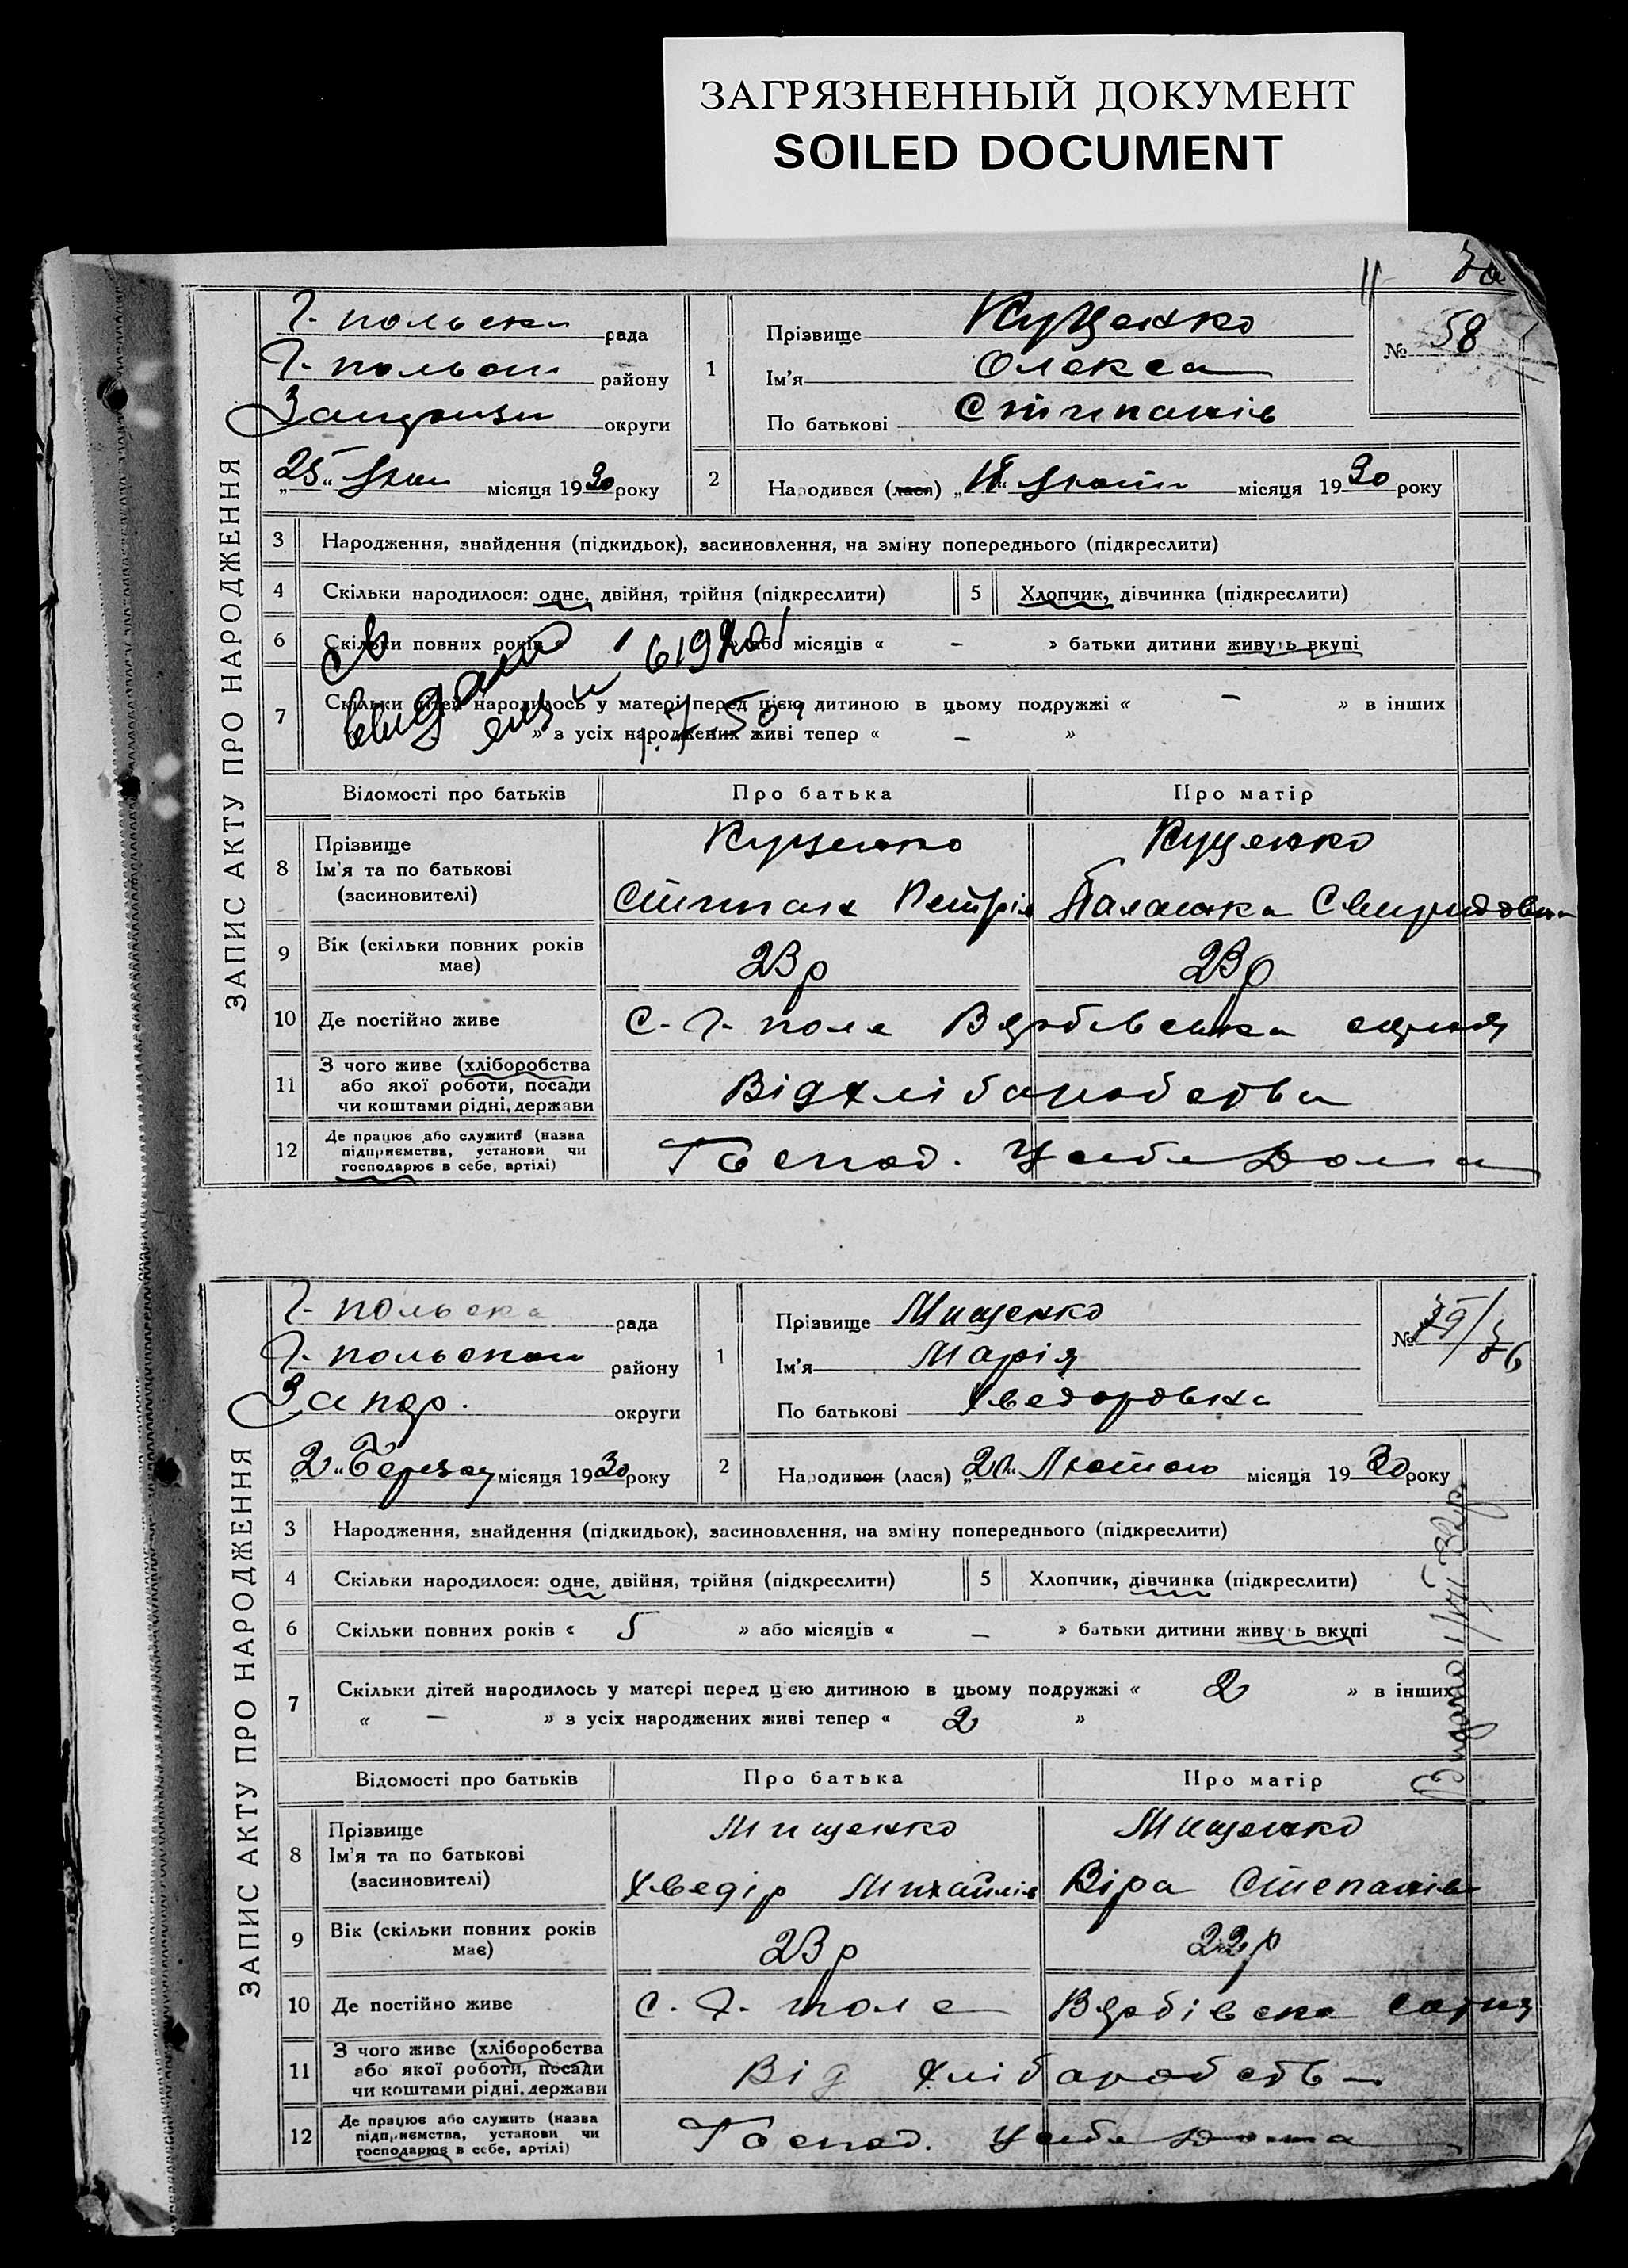 ЗАГРЯЗНЕННЫЙ ДОКУМЕНТ
SOILED DOCUMENT
ЗАПИС АКТУ ПРО НАРОДЖЕННЯ
Г. польська рада
Г. польськ району
округи
„25“ місяця 1930 року
1 Прізвище Куценко
Ім'я Олекса
По батькові Стипанів
№ 58
2 Народився (лася) місяця 1930 року
3 Народження, знайдення (підкидьок), засиновлення, на зміну попереднього (підкреслити)
4 Скільки народилося: одне, двійня, трійня (підкреслити)
5 Хлопчик, дівчинка (підкреслити)
6 Скільки повних років « » або місяців « – » батьки дитини живуть вкупі
7 Скільки дітей народилось у матері перед цією дитиною в цьому подружжі « – » в інших
» з усіх народжених живі тепер « – »
Відомості про батьків Про батька Про матір
8 Прізвище
Ім'я та по батькові
(засиновителі)
Куценко Куценко
Стипан Петрів Палашка Свиридовна
9 Вік (скільки повних років має)
23 р 23 р
10 Де постійно живе С. Г. поле Вербівська сотня
11 З чого живе (хліборобства
або якої роботи, посади
чи коштами рідні, держави
Від хліборобства
12 Де працює або служить (назва
підприємства, установи чи
господарює в себе, артілі)
Господ. У себе дома
ЗАПИС АКТУ ПРО НАРОДЖЕННЯ
Г. польська рада
Г. польського району
Запор. округи
„2“ Березня місяця 1930 року
1 Прізвище Мищенко
Ім'я Марія
По батькові Хведоровна
№
2 Народився (лася) Лютого місяця 1930 року
3 Народження, знайдення (підкидьок), засиновлення, на зміну попереднього (підкреслити)
4 Скільки народилося: одне, двійня, трійня (підкреслити)
5 Хлопчик, дівчинка (підкреслити)
6 Скільки повних років « 5 » або місяців « – » батьки дитини живуть вкупі
7 Скільки дітей народилось у матері перед цією дитиною в цьому подружжі « 2 » в інших
« – » з усіх народжених живі тепер « 2 »
Видано
Відомості про батьків Про батька Про матір
8 Прізвище
Ім'я та по батькові
(засиновителі)
Мищенко Мищенко
Хведір Михайлів Віра Степанів
9 Вік (скільки повних років має)
23 р 22 р
10 Де постійно живе С. Г. поле Вербівська сотня
11 З чого живе (хліборобства
або якої роботи, посади
чи коштами рідні, держави
Від хліборобств
12 Де працює або служить (назва
підприємства, установи чи
господарює в себе, артілі)
Господ. У себе дома